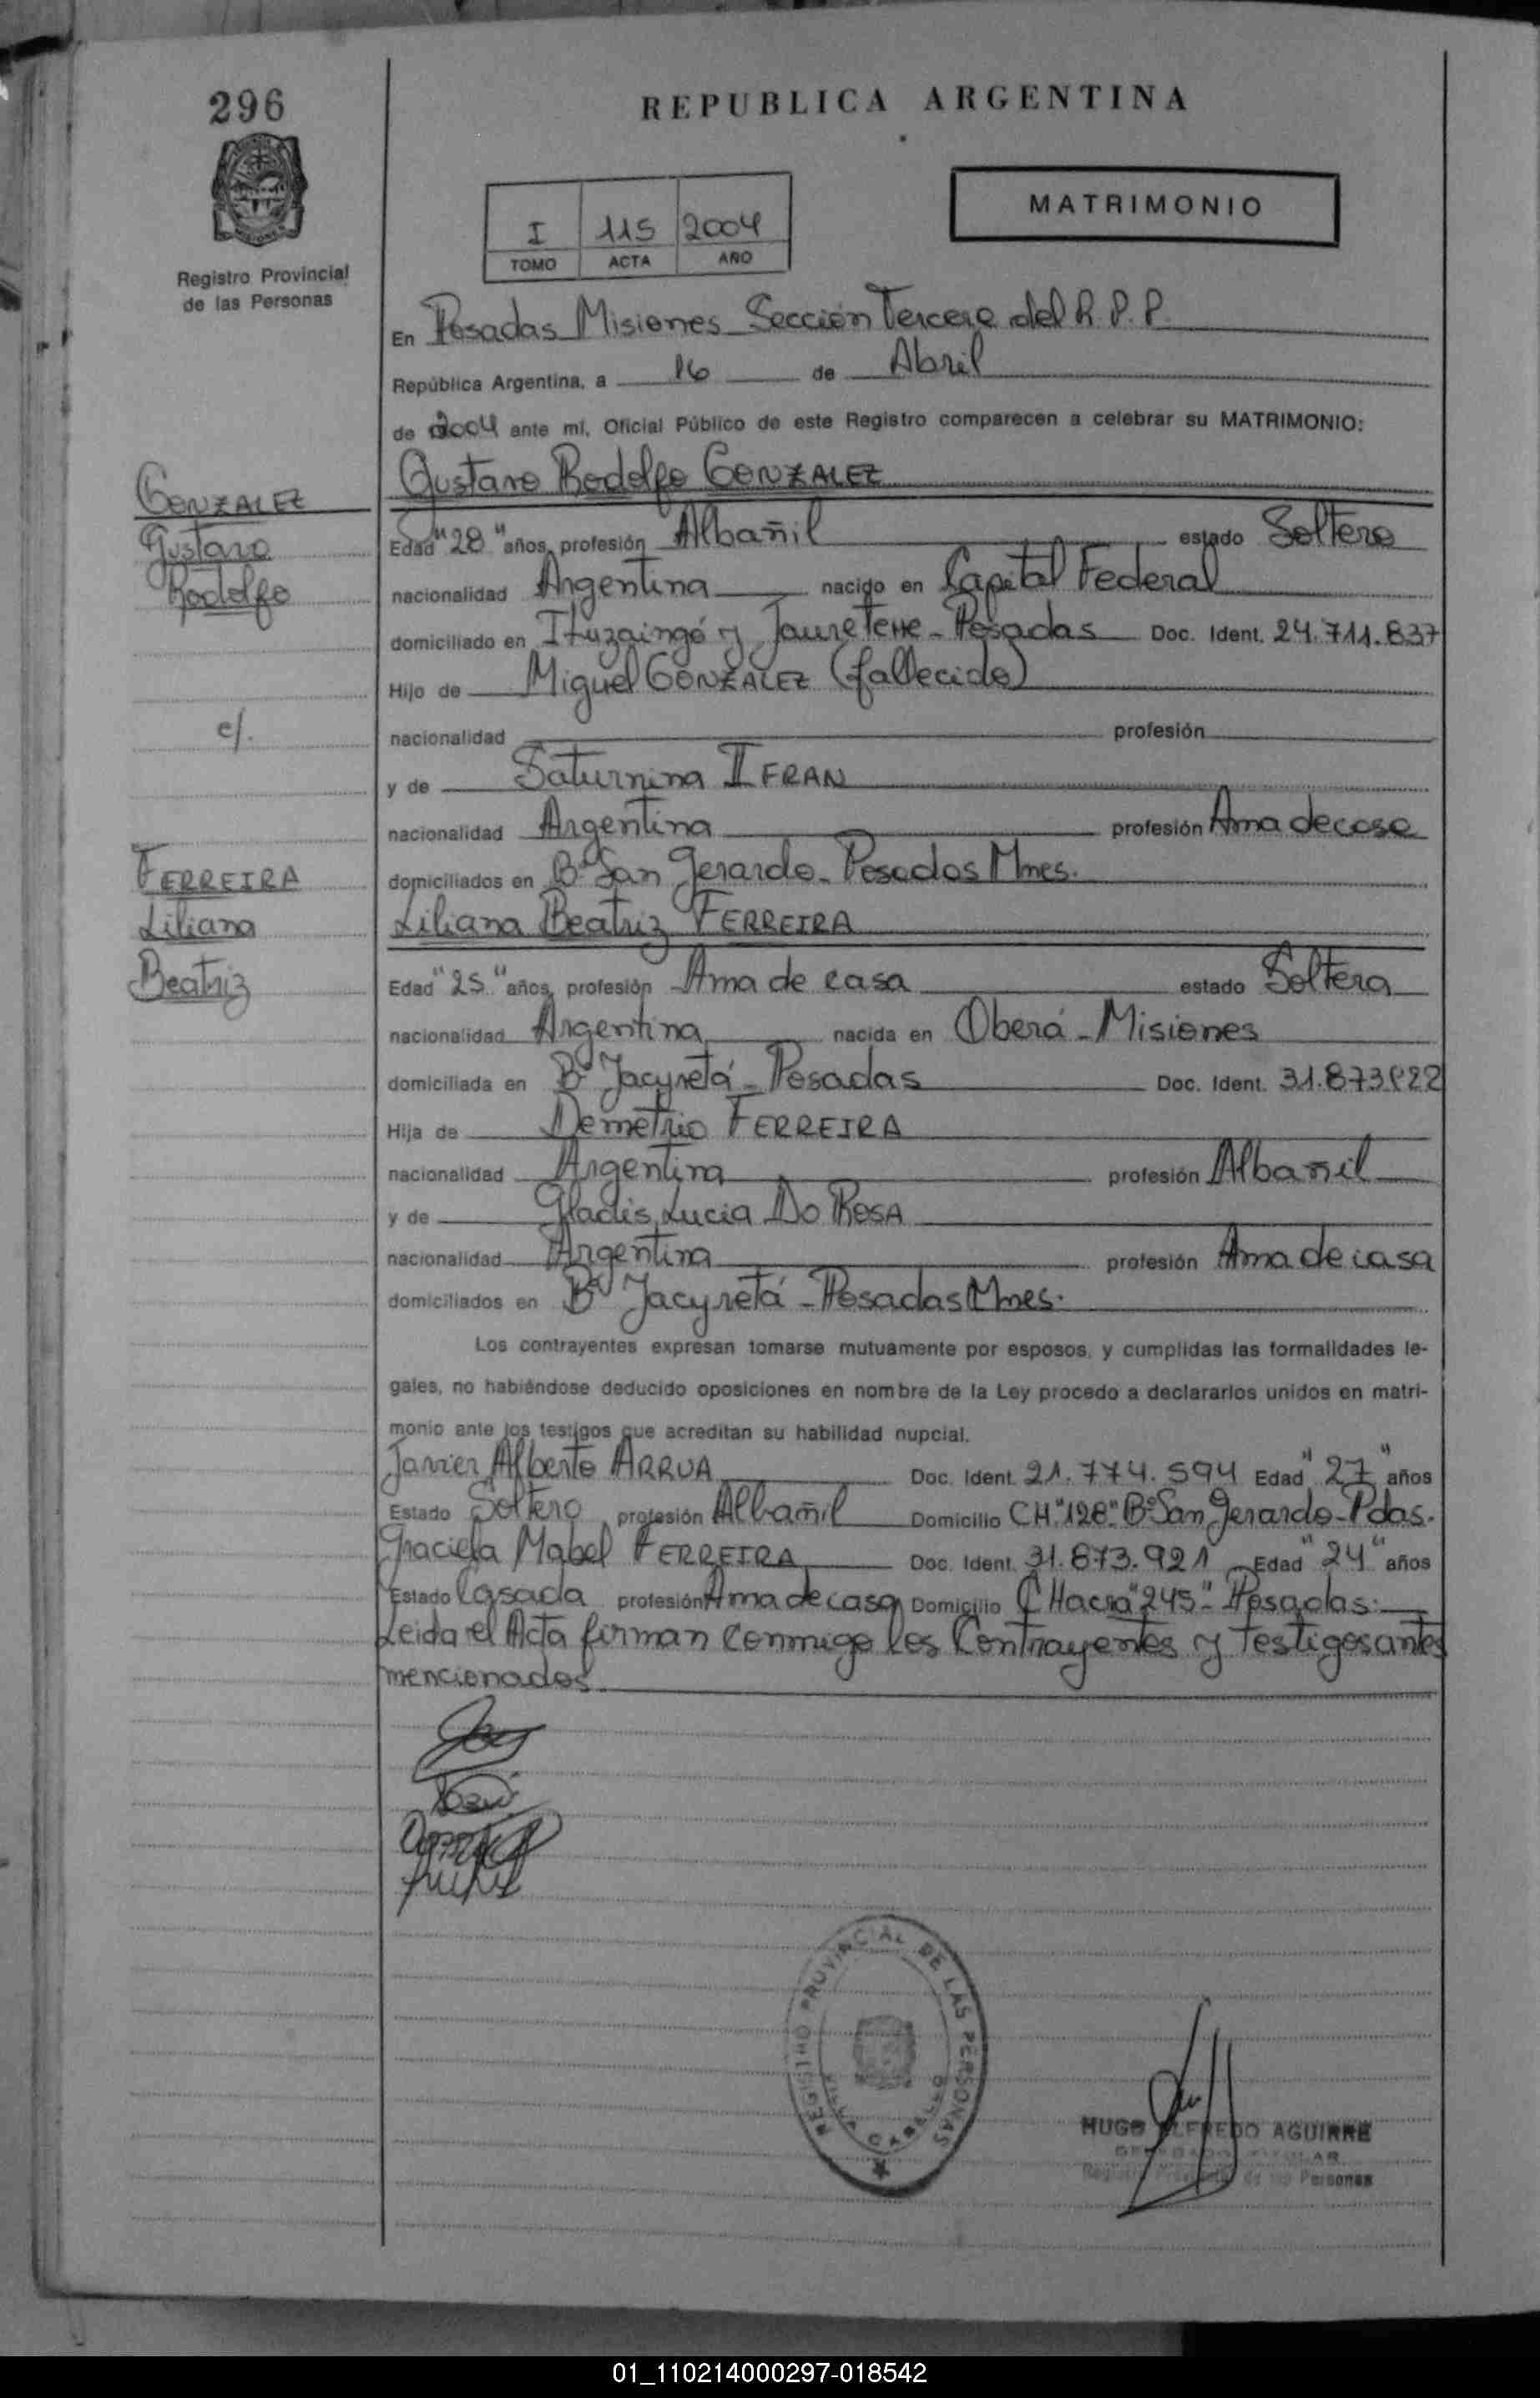 296
REPUBLICA ARGENTINA
MATRIMONIO
I 115 2004
TOMO ACTA AÑO
Registro Provincial
de las Personas
En Posadas Misiones Sección Tercera del R.P.P.
República Argentina, a 16 de Abril
de 2004 ante mí, Oficial Público de este Registro comparecen a celebrar su MATRIMONIO:
GONZALEZ
Gustavo
Rodolfo
c/.
FERREIRA
Liliana
Beatriz
Gustavo Rodolfo GONZALEZ
Edad "28" años, profesión Albañil estado Soltero
nacionalidad Argentina nacido en Capital Federal
domiciliado en Ituzaingó y Posadas Doc. Ident. 24.711.837
Hijo de Miguel GONZALEZ (fallecido)
nacionalidad profesión
y de Saturnina IFRAN
nacionalidad Argentina profesión Ama de casa
domiciliados en B° San Gerardo - Posadas Mnes.
Liliana Beatriz FERREIRA
Edad "25" años, profesión Ama de casa estado Soltera
nacionalidad Argentina nacida en Oberá - Misiones
domiciliada en B° Yacyretá - Posadas Doc. Ident.
Hija de Demetrio FERREIRA
nacionalidad Argentina profesión Albañil
y de Gladis Lucia DO ROSA
nacionalidad Argentina profesión Ama de casa
domiciliados en B° Yacyretá - Posadas Mnes.
Los contrayentes expresan tomarse mutuamente por esposos, y cumplidas las formalidades le-
gales, no habiéndose deducido oposiciones en nombre de la Ley procedo a declararlos unidos en matri-
monio ante los testigos que acreditan su habilidad nupcial.
Javier Alberto ARRUA Doc. Ident. 21.774.594 Edad "27" años
Estado Soltero profesión Albañil Domicilio CH. "128" B° San Gerardo - Pdas.
Graciela Mabel FERREIRA Doc. Ident. 31.873.921 Edad "24" años
Estado Casada profesión Ama de casa Domicilio CHacra "245" - Posadas.
Leida el Acta firman conmigo los Contrayentes y testigos antes
mencionados.
REGISTRO PROVINCIAL DE LAS PERSONAS
HUGO ALFREDO AGUIRRE
Registro Provincial de las Personas
01_110214000297-018542